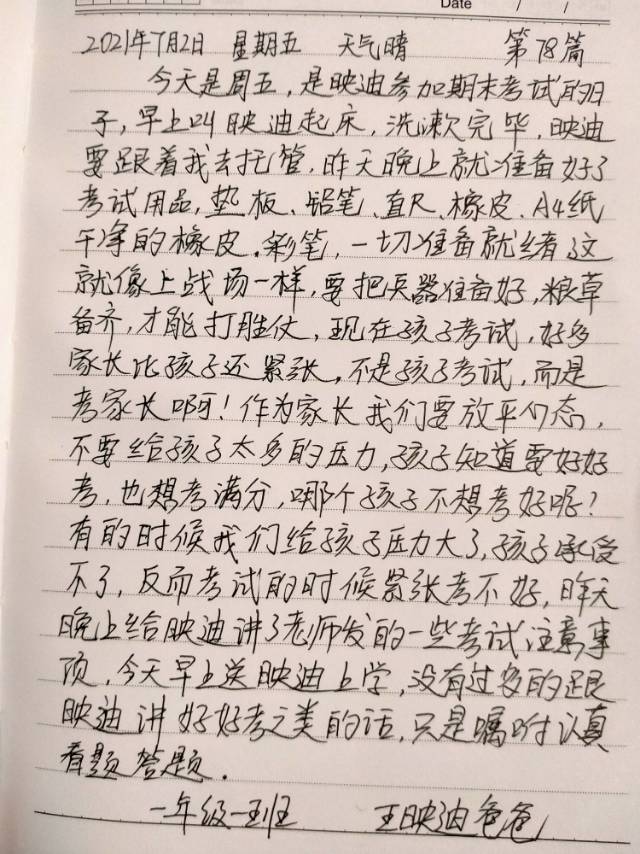 Date / /
2021年7月2日 星期五 天气晴 第78篇
今天是周五，是映迪参加期末考试的日
子，早上叫映迪起床，洗漱完毕，映迪
要跟着我去托管，昨天晚上就准备好了
考试用品，垫板、铅笔、直尺、橡皮、A4纸
干净的橡皮．彩笔，一切准备就绪，这
就像上战场一样，要把兵器准备好，粮草
备齐，才能打胜仗，现在孩子考试，好多
家长比孩子还紧张，不是孩子考试，而是
考家长啊！作为家长我们要放平心态，
不要给孩子太多的压力，孩子知道要好好
考，也想考满分，哪个孩子不想考好呢？
有的时候我们给孩子压力大了，孩子承受
不了，反而考试的时候紧张考不好，昨天
晚上给映迪讲了老师发的一些考试注意事
项，今天早上送映迪上学，没有过多的跟
映迪讲好好考之类的话，只是嘱咐认真
看题答题．
一年级一班 王映迪爸爸